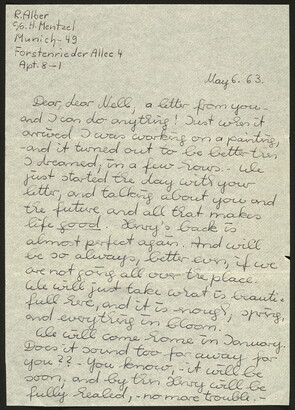 R. Alber
c/o. H. Mentzel
Munich - 49
Forstenrieder Allee 4
Apt. 8-1
May 6. 63.
Dear, dear Nell, a letter from you -
and I can do anything! Just when it
arrived I was working on a painting,
- and it turned out to be better then
I dreamed, in a few rows. - We
just started the day with your
letter, and talking about you and
the future and all that makes
life good. Henry's back is
almost perfect again. And will
be so always, better even, if we
are not going all over the place.
We will just take what is beauti-
full here, and it is enough, spring,
and everything in bloom.
We will come home in January.
Does it sound too far away for
you?? - You know, - it will be
soon, and by then Henry will be
fully healed, - no more trouble. -